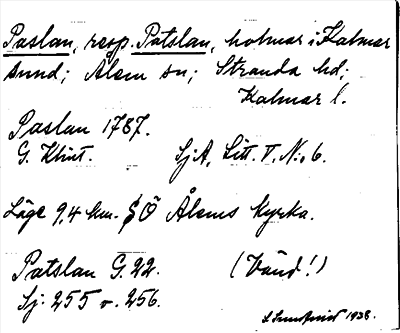 Paslan, resp. Patslan, holmar i Kalmar
sund; Ålem sn; Stranda hd;
Kalmar l.
Paslan 1787.
G. Klint. SjA, Litt. V, No 6.
Läge 9,4 km. SÖ Ålems kyrka.
Patslan G. 22. (Vänd!)
Sj. 255 o. 256.
1938.